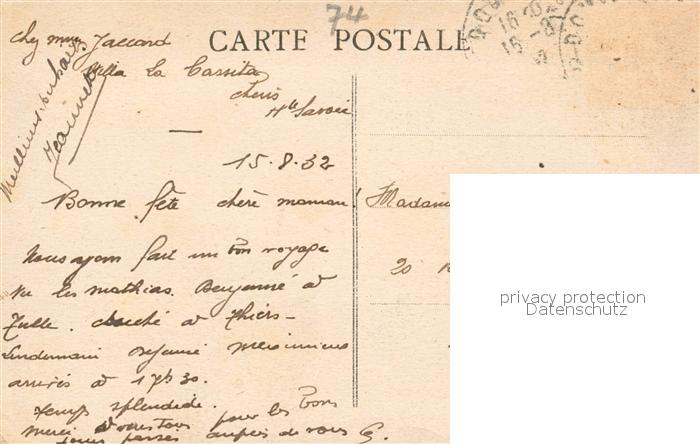 74
CARTE POSTALE
chez mme Jaccard
Villa la
Hte Savoie
Jeannette
15.8.32
Bonne fête chère maman!
Nous ayons fait un bon voyage
vu les mathias. Dejeuné à
Tulle. couché à Thiers -
Lendemain Dejeuné
arrivés à 17h30.
temps splendide.
merci à vous tous pour les bons
jours passés auprès de vous
Madame
20
privacy protection
Datenschutz